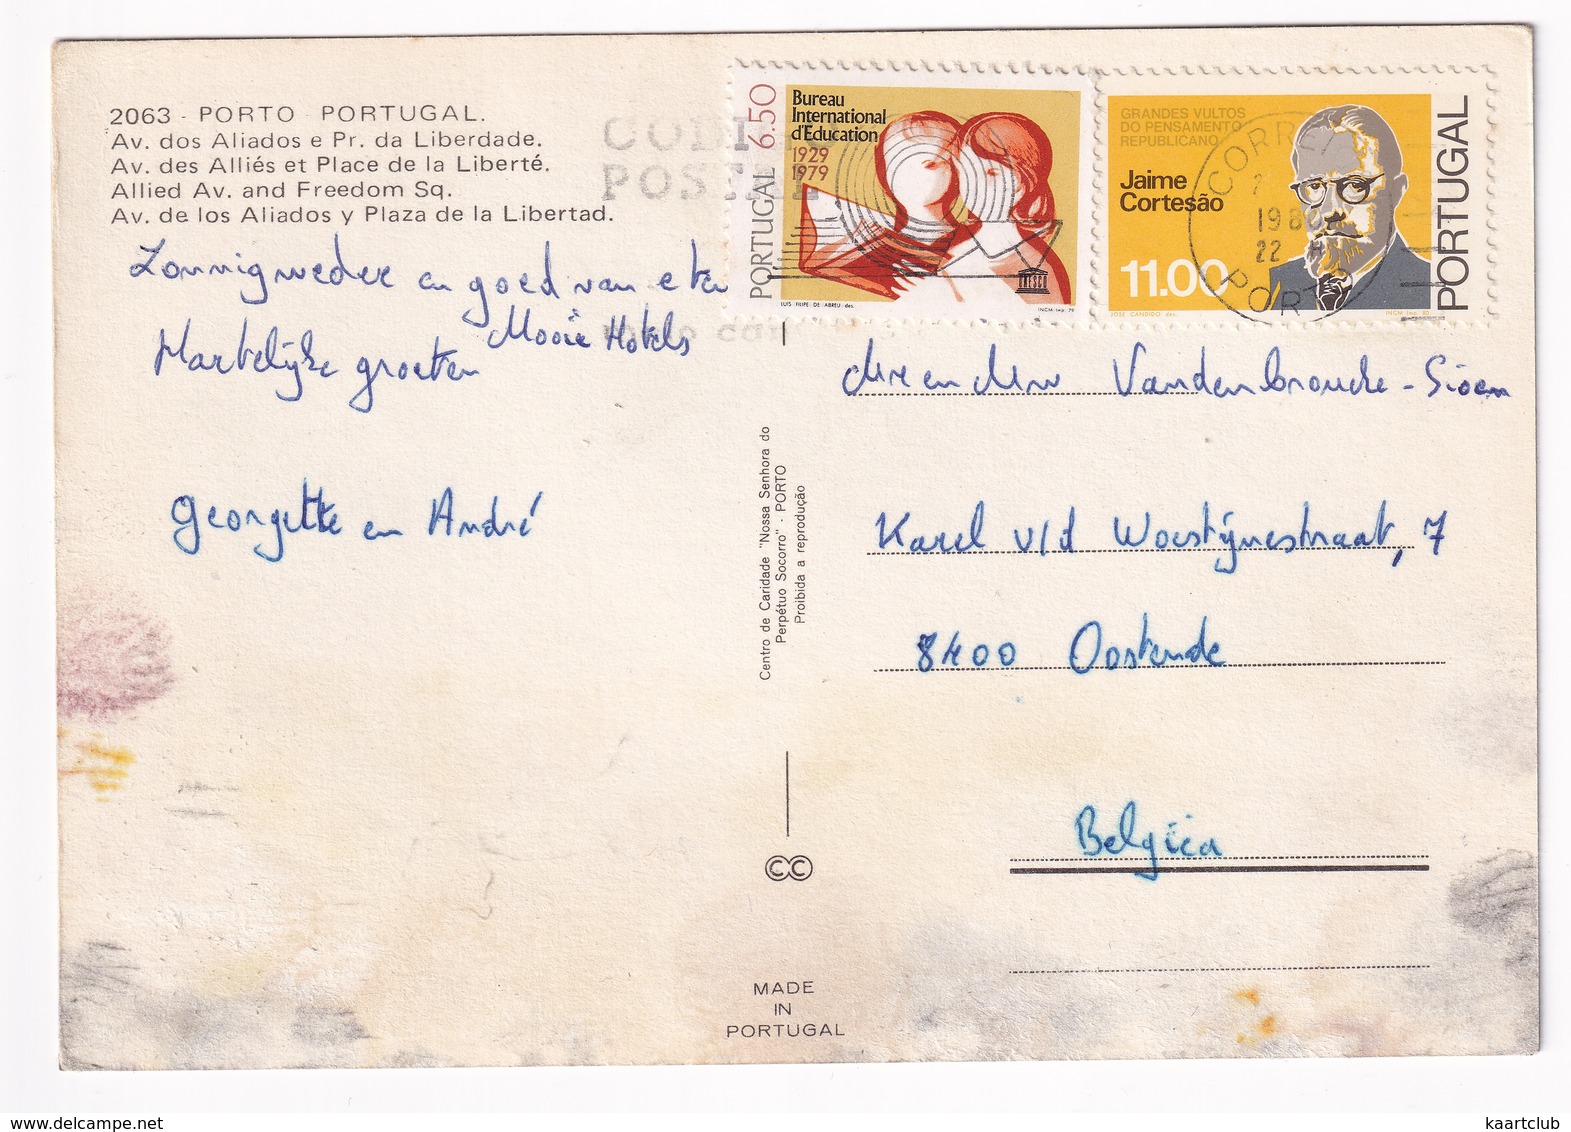 2063 - PORTO - PORTUGAL.
Av. dos Aliados e Pr. da Liberdade.
Av. des Alliés et Place de la Liberté.
Allied Av. and Freedom Sq.
Av. de los Aliados y Plaza de la Libertad.
Zonnig weder en goed van eten
Mooie Hotels
Hartelijke groeten
Georgette en André
PORTUGAL 6.50
Bureau
International
d'Education
1929
1979
UNESCO
LUIS FILIPE DE ABREU des.
INCM Imp. 79
GRANDES VULTOS
DO PENSAMENTO
REPUBLICANO
Jaime
Cortesão
11.00
PORTUGAL
JOSÉ CANDIDO des.
INCM Imp. 80
POSTAL
1980
22
PORTO
Mr en Mw Vandenbroucke - Sioen
Karel v/d Woestijnestraat, 7
8400 Oostende
Belgica
Centro de Caridade "Nossa Senhora do
Perpétuo Socorro" - PORTO
Proibida a reprodução
CC
MADE
IN
PORTUGAL
kaartclub